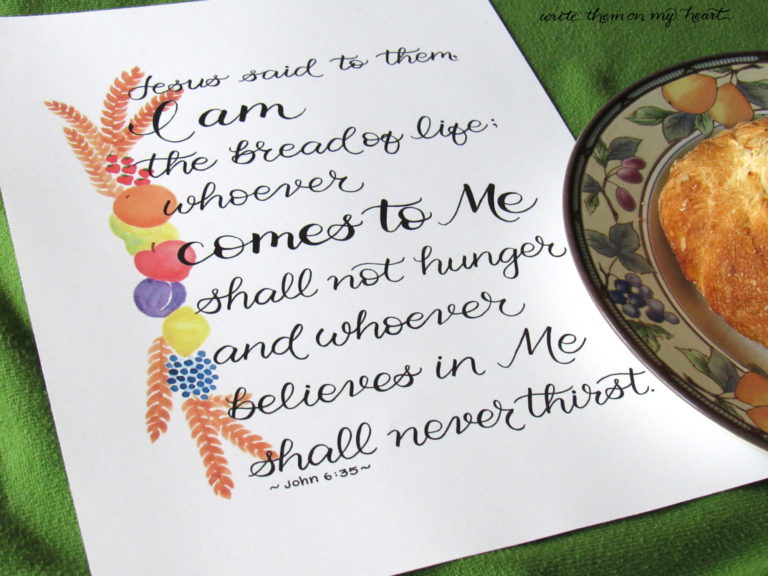 write them on my heart...
Jesus said to them.
I am
the bread of life;
whoever
comes to Me
shall not hunger
and whoever
believes in Me
shall never thirst.
~ John 6:35 ~